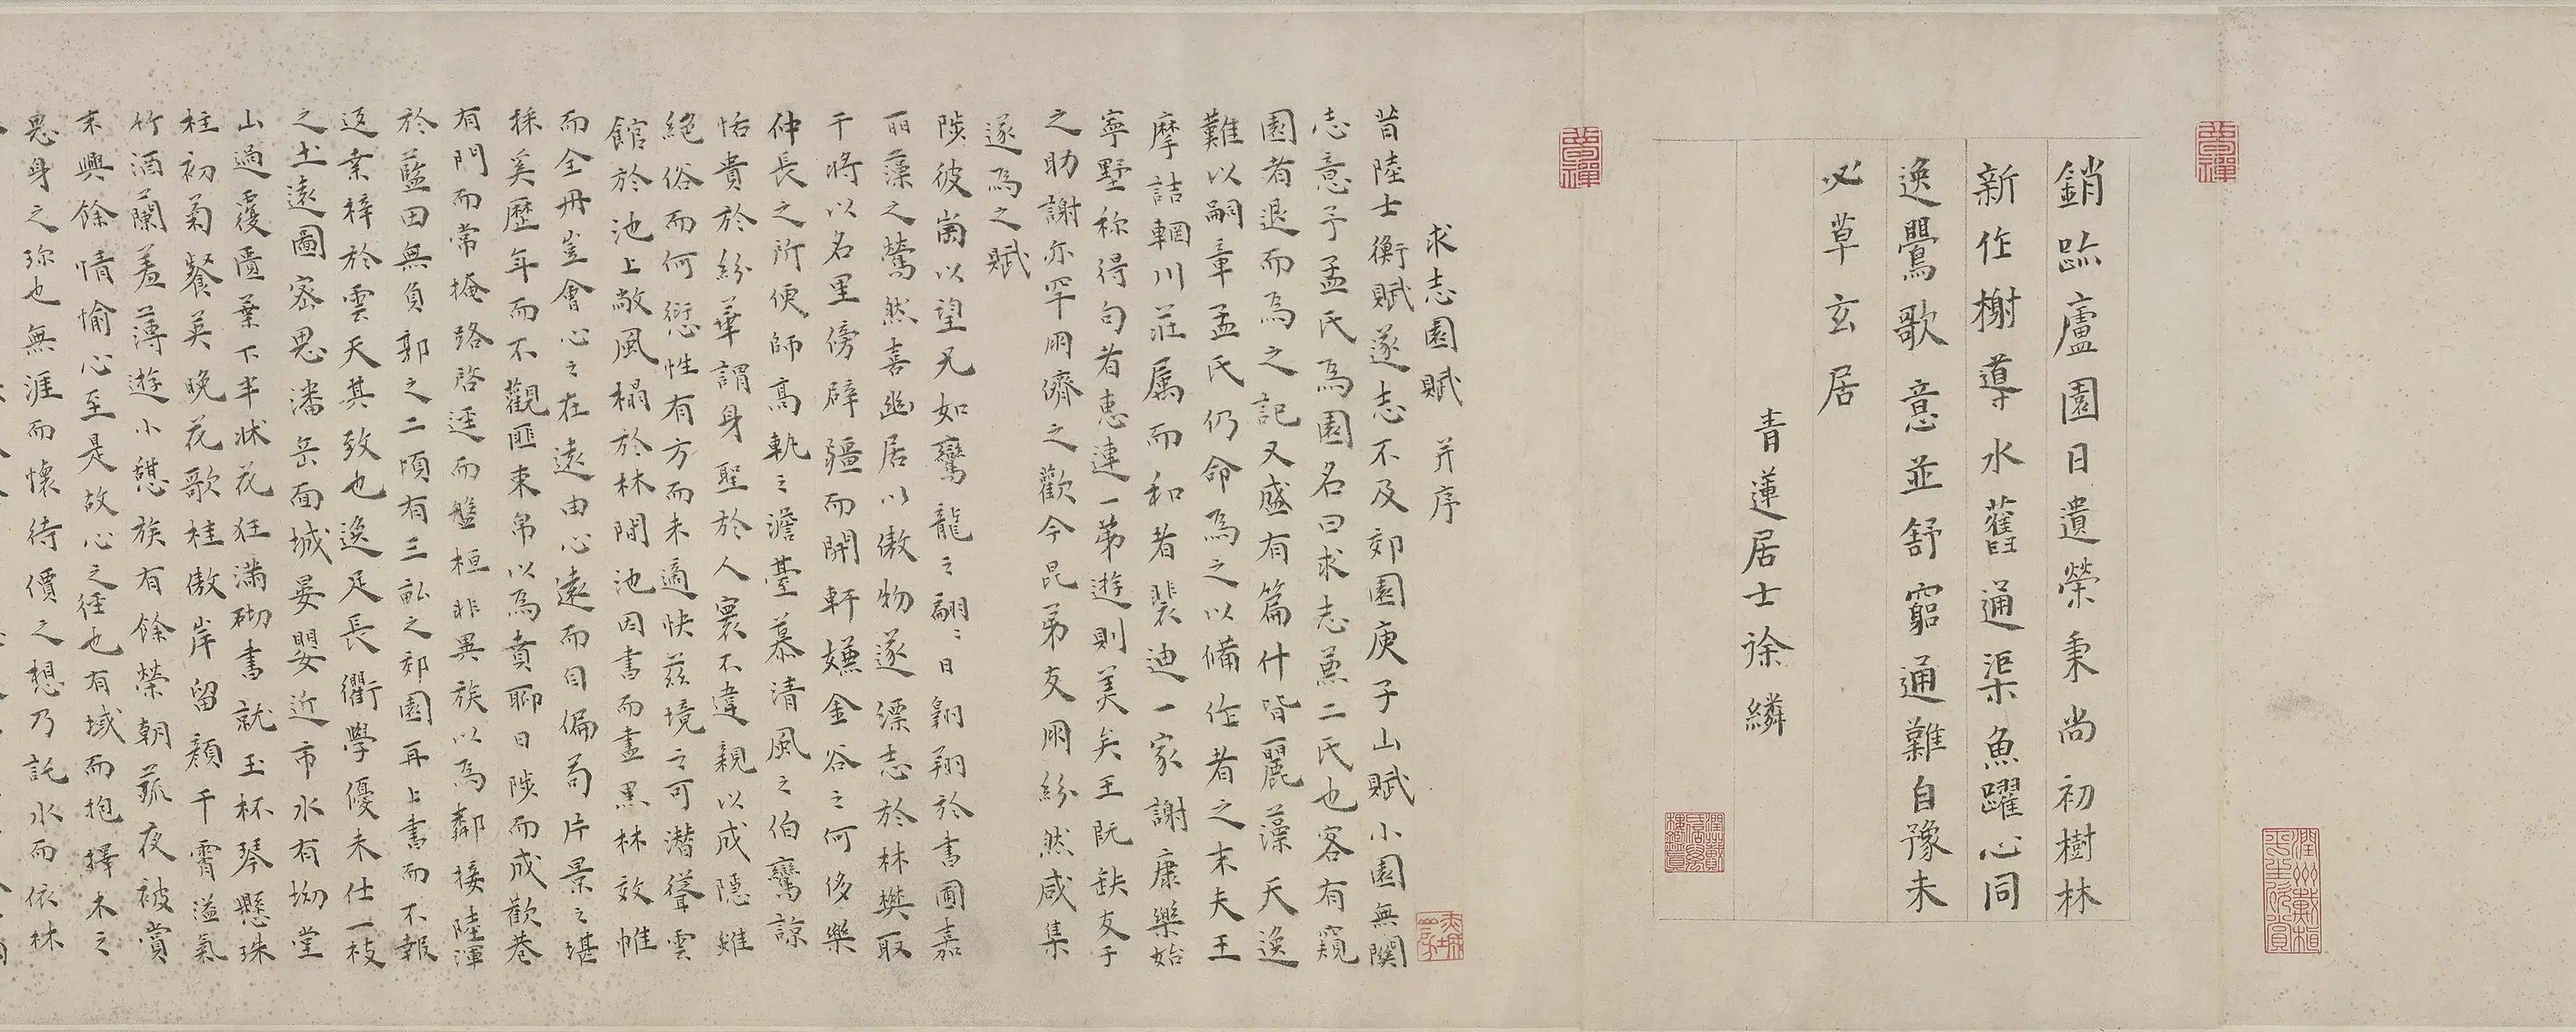 銷跡廬園日遺榮秉尚初樹林
新作榭導水舊通渠魚躍心同
逸鶯歌意並舒窮通難自豫未
必草玄居
青蓮居士徐縉
求志園賦 并序
昔陸士衡賦遂志不及郊園庾子山賦小園無關
志意予孟氏為園名曰求志蓋二氏也客有窺
園者退而為之記又盛有篇什皆麗藻天逸
難以嗣章孟氏仍命為之以備作者之末夫王
摩詰輞川莊屬而和者裴迪一家謝康樂始
寧墅称得句者惠連一弟遊則美矣王既缺友于
之助謝亦罕朋儕之歡今昆弟友朋紛然咸集
遂為之賦
陟彼崗以望兄如鸞龍之翩〻日翱翔於書圃嘉
丽藻之驚然喜幽居以傲物遂漂志於林樊取
干將以名里傍辟疆而開軒嫌金谷之何侈樂
仲長之所便師高軌之澹臺慕清風之伯鸞諒
恬貴於紛華謂身聖於人寰不違親以成隱雖
絕俗而何愆性有方而未適快茲境之可潛聳雲
館於池上敞風榻於林間池因書而盡黑林效帷
而全丹豈會心之在遠由心遠而自偏苟片景之堪
採奚歷年而不觀匪束帛以為賁聊日陟而成歡巷
有門而常掩路啓逕而盤桓非異族以為鄰接陸渾
於藍田無負郭之二頃有三畝之郊園再上書而不報
返業梓於雲天其致也逸足長衢學優未仕一枝
之土遠圖密思潘岳面城晏嬰近市水有坳堂
山過覆匱葉下半牀花狂滿砌書就玉杯琴懸珠
柱初菊餐英晚花歌桂傲岸留顏干霄溢氣
竹酒蘭羞薄遊小憩族有餘榮朝蔬夜被賞
末興餘情愉心至是故心之徃也有域而抱擇木之
思身之珎也無涯而懷待價之想乃託水而依林